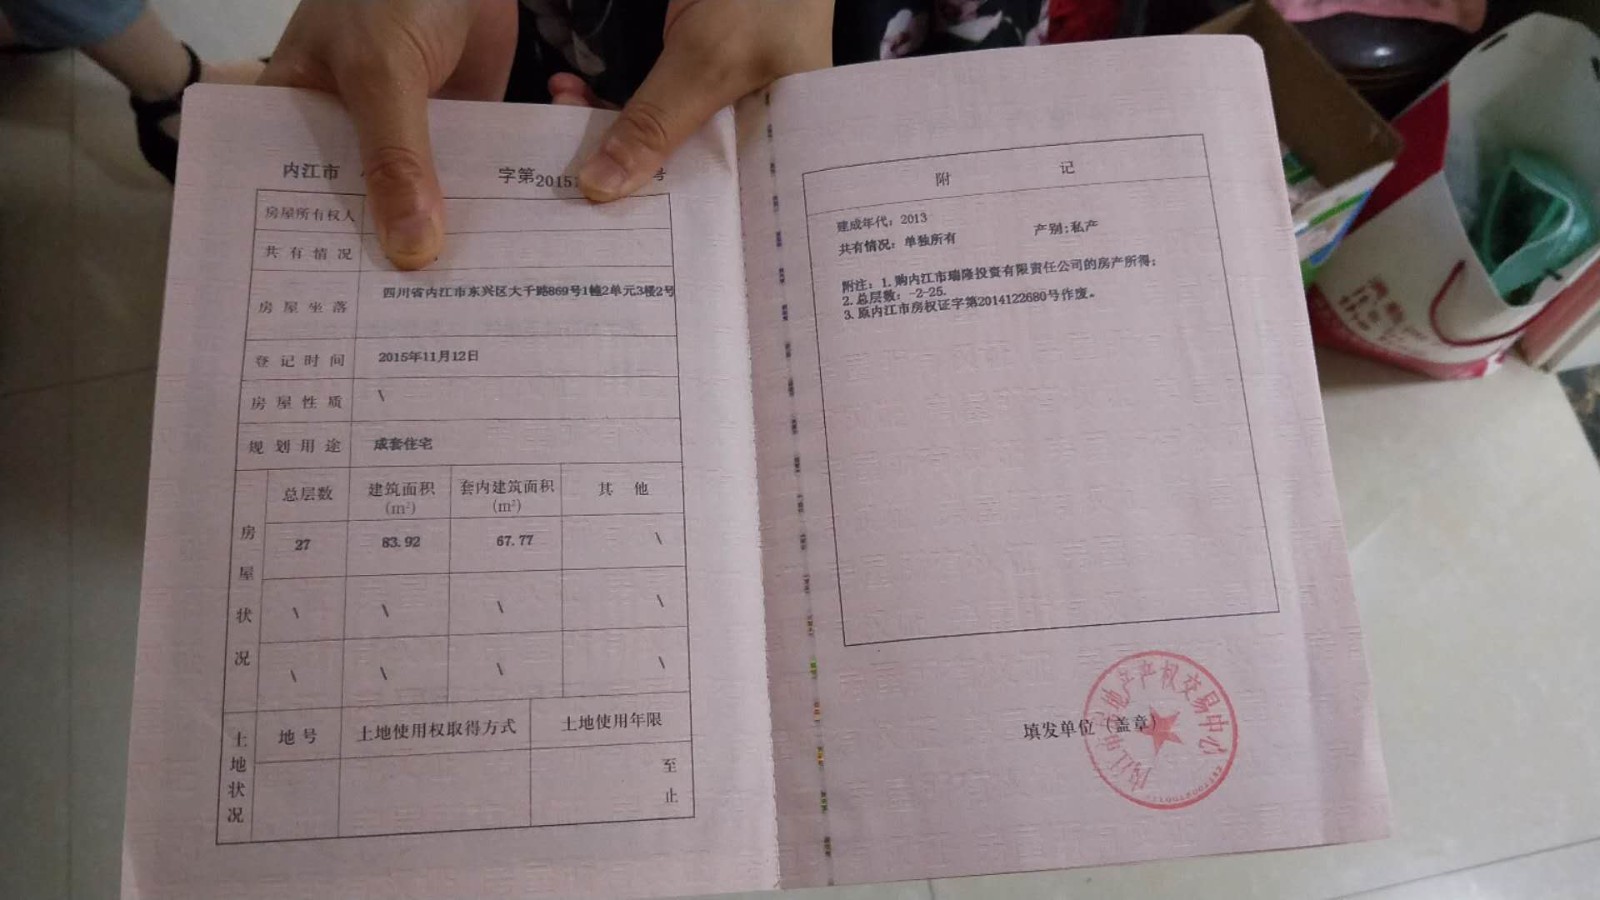 内江市 字第2015 号
房屋所有权人
共有情况
房屋坐落 四川省内江市东兴区大千路869号1幢2单元3楼2号
登记时间 2015年11月12日
房屋性质 \
规划用途 成套住宅
房屋状况
总层数 建筑面积(m²) 套内建筑面积(m²) 其他
27 83.92 67.77 \
\ \ \ \
\ \ \ \
土地状况
地号 土地使用权取得方式 土地使用年限
至
止
附 记
建成年代：2013
共有情况：单独所有 产别:私产
附注：1.购内江市瑞隆投资有限责任公司的房产所得；
2.总层数：-2-25.
3.原内江市房权证字第2014122680号作废。
填发单位（盖章）